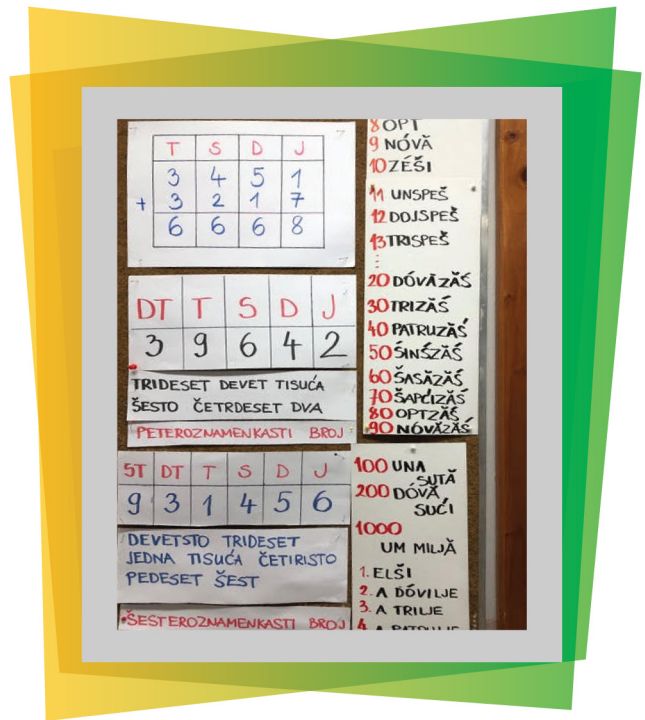 T S D J
3 4 5 1
+ 3 2 1 7
6 6 6 8
DT T S D J
3 9 6 4 2
TRIDESET DEVET TISUĆA
ŠESTO ČETRDESET DVA
PETEROZNAMENKASTI BROJ
ST DT T S D J
9 3 1 4 5 6
DEVETSTO TRIDESET
JEDNA TISUĆA ČETIRISTO
PEDESET ŠEST
ŠESTEROZNAMENKASTI BROJ
8 OPT
9 NÓVĂ
10 ZÉŠI
11 UNSPEŠ
12 DOJSPEŠ
13 TRISPEŠ
⋮
20 DÓVĂZĂŚ
30 TRIZĂŚ
40 PATRUZĂŚ
50 ŚINŚZĂŚ
60 ŠASĂZĂŚ
70 ŠAPĆIZĂŚ
80 OPTZĂŚ
90 NÓVĂZĂŚ
100 UNA
SUTĂ
200 DÓVĂ
SUĆI
1000
UM MILJĂ
1. ELŠI
2. A DÓVILJE
3. A TRILJE